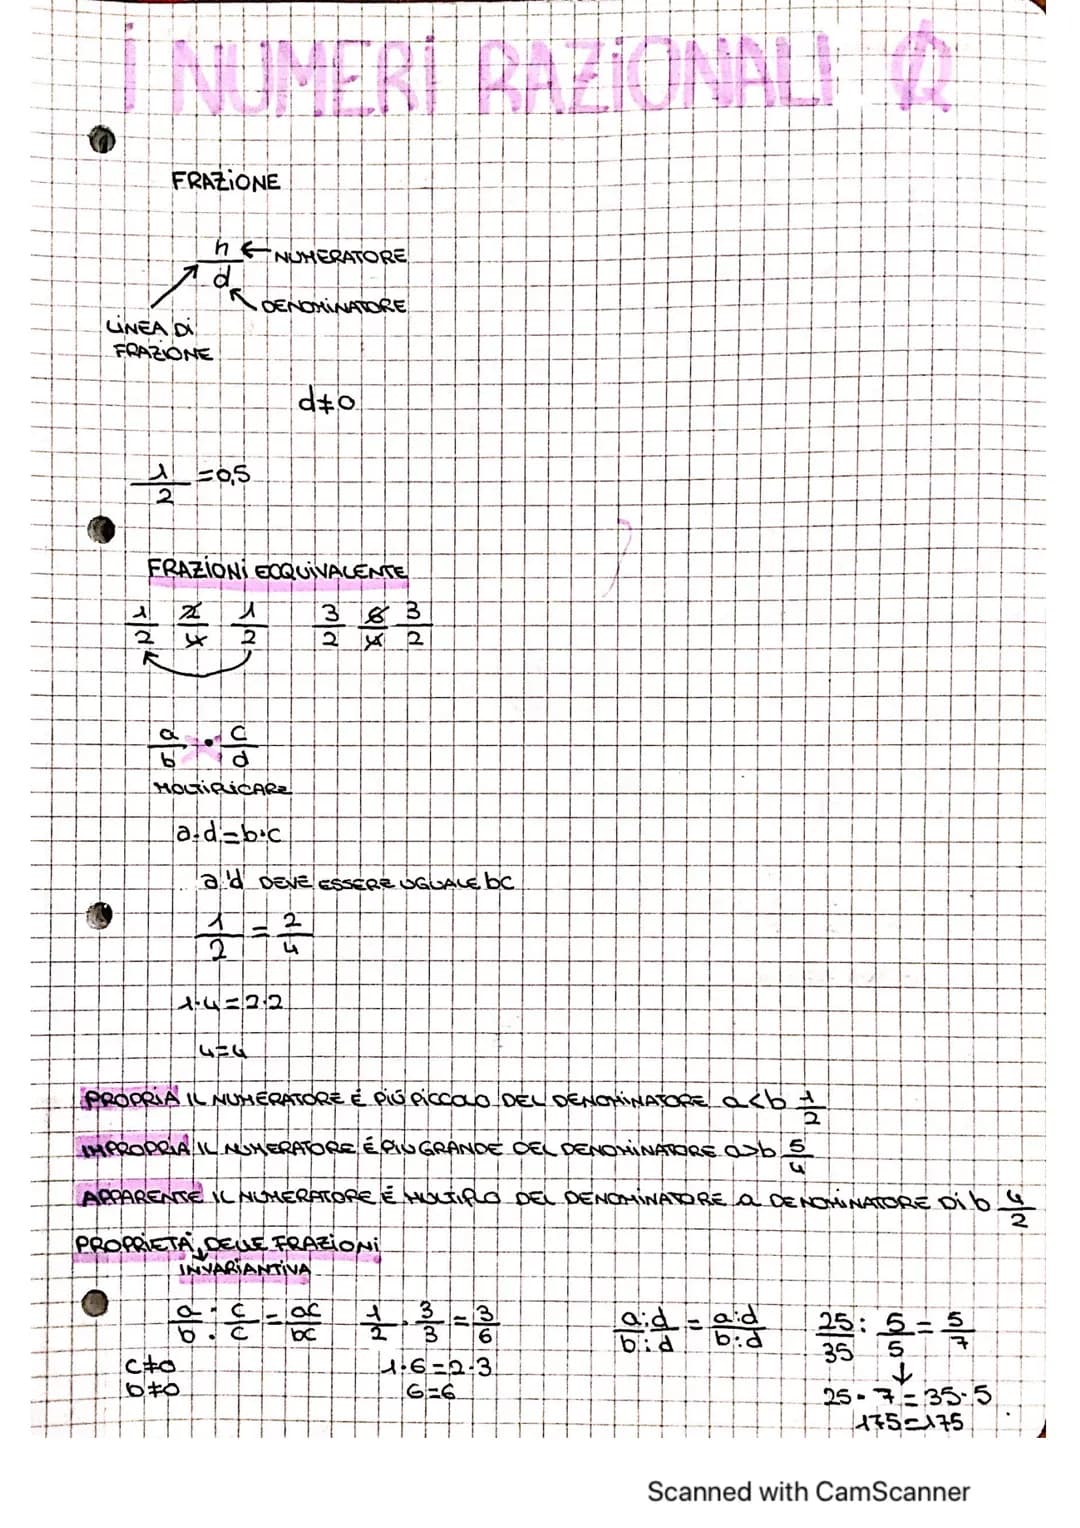 I NUMERI RAZIONALI Q
FRAZIONE
n ← NUMERATORE
d
DENOMINATORE
LINEA DI
FRAZIONE
d≠0
1/2 = 0,5
FRAZIONI EQQUIVALENTE
1/2 2/4 1/2 3/2 6/4 3/2
a/b · c/d
MOLTIPLICARE
a·d=b·c
a·d DEVE ESSERE UGUALE bc
1/2 = 2/4
1·4=2·2
4=4
PROPRIA IL NUMERATORE É PIÚ PICCOLO DEL DENOMINATORE a<b 1/2
IMPROPRIA IL NUMERATORE É PIÚ GRANDE DEL DENOMINATORE a>b 5/4
APPARENTE IL NUMERATORE É MULTIPLO DEL DENOMINATORE a DENOMINATORE DI b 4/2
PROPRIETÀ DELLE FRAZIONI
INVARIANTIVA
a/b · c/c = ac/bc 1/2 · 3/3 = 3/6 a:d/b:d = a:d/b:d 25/35 : 5/5 = 5/7
c≠0 1·6=2·3
b≠0 6=6
25·7=35·5
175=175
Scanned with CamScanner